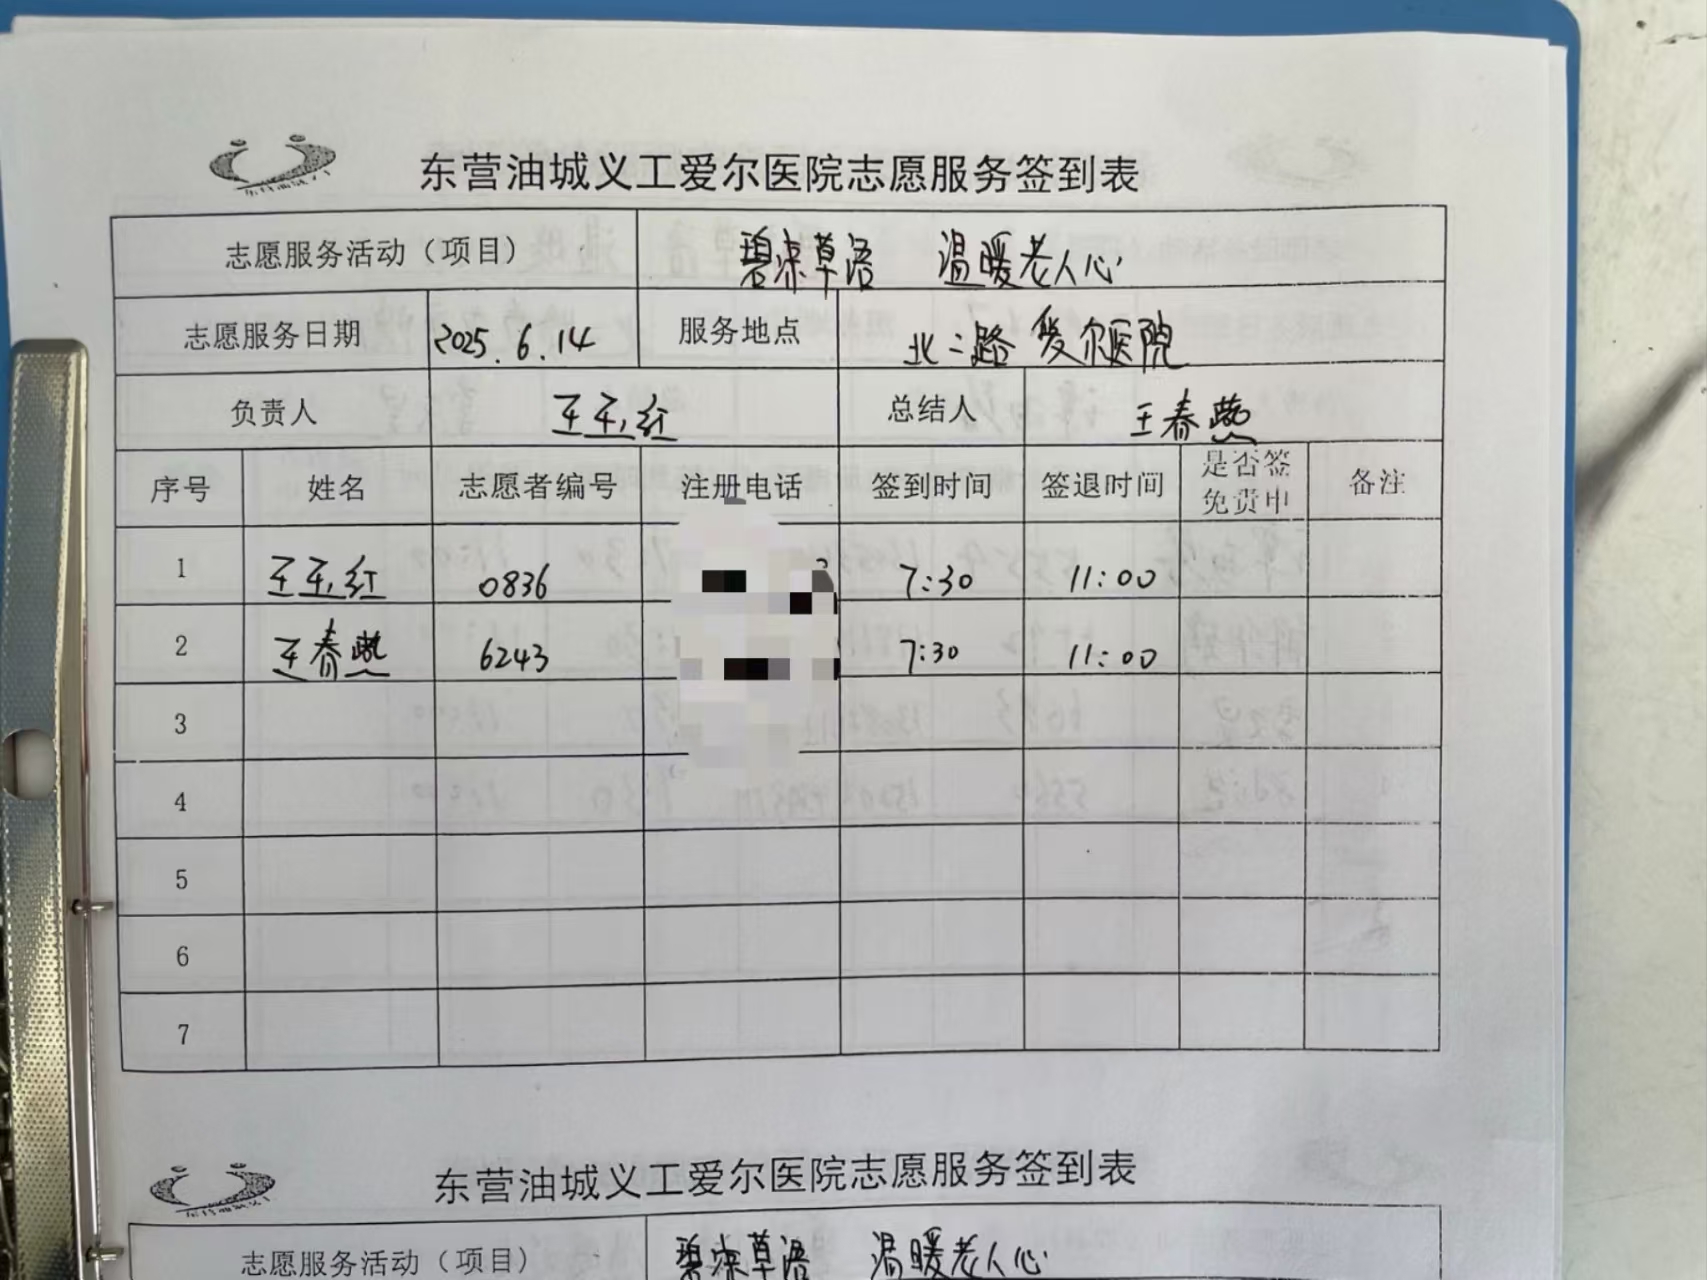 东营油城义工爱尔医院志愿服务签到表
志愿服务活动（项目） 碧波草语 温暖老人心
志愿服务日期 2025.6.14 服务地点 北二路 爱尔医院
负责人 王玉红 总结人 王春燕
序号 姓名 志愿者编号 注册电话 签到时间 签退时间 是否签免责申 备注
1 王玉红 0836 7:30 11:00
2 王春燕 6243 7:30 11:00
3
4
5
6
7
东营油城义工爱尔医院志愿服务签到表
志愿服务活动（项目） 碧波草语 温暖老人心